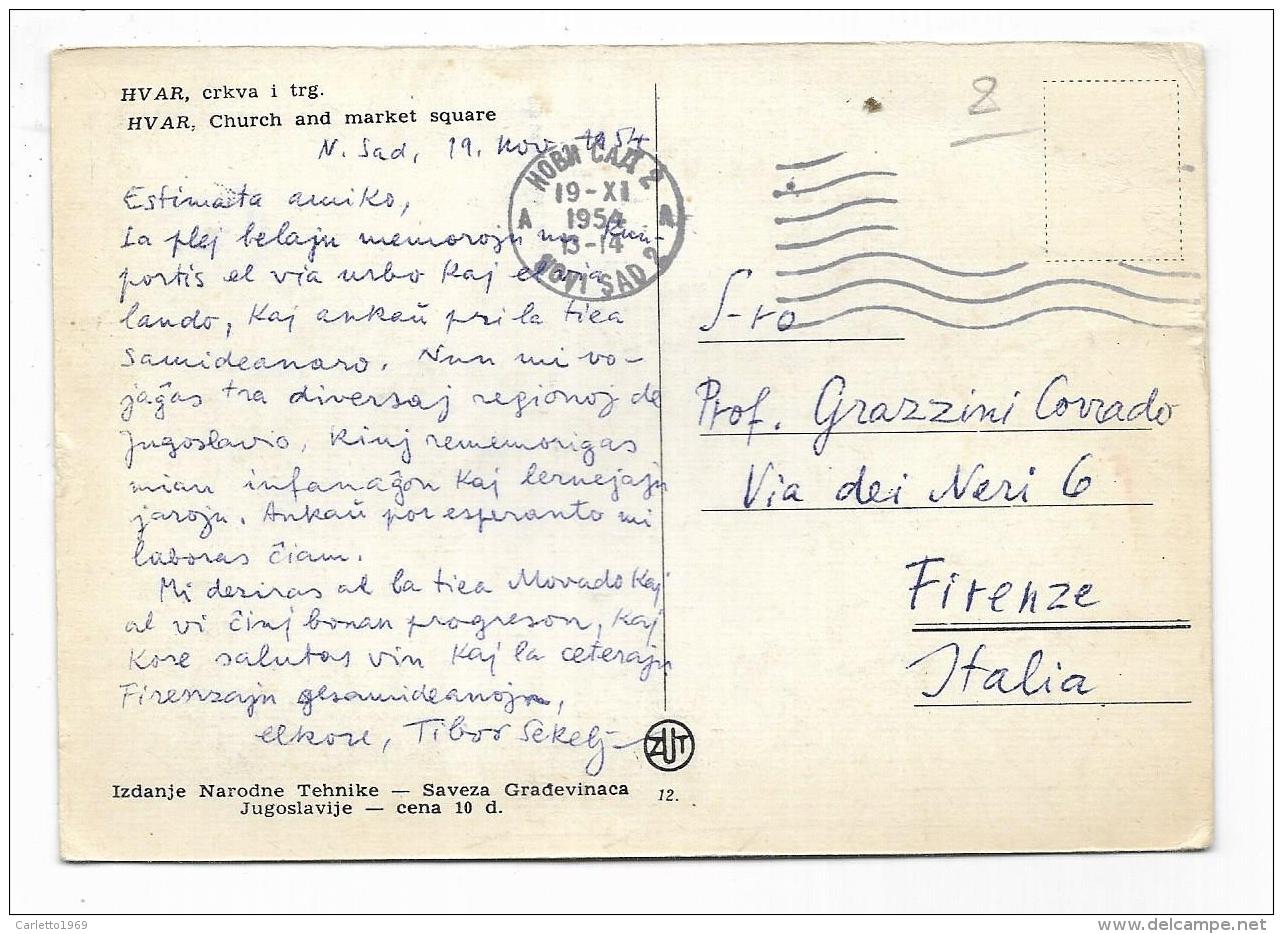 HVAR, crkva i trg.
HVAR, Church and market square
N. Sad, 19. Nov. 1954
Estimata amiko,
La plej belajn memorojn mi kun-
portis el via urbo Kaj el via
lando, Kaj ankaŭ pri la tiea
Samideanaro. Nun mi vo-
jaĝas tra diversaj regionoj de
Jugoslavio, Kiuj rememorigas
mian infanaĝon Kaj lernejajn
jarojn. Ankaŭ por esperanto mi
laboras ĉiam.
Mi deziras al la tiea Movado Kaj
al vi ĉiuj bonan progreson, Kaj
Kore salutas vin Kaj la ceterajn
Firenzajn gesamideanojn,
elkore, Tibor Sekelj
Izdanje Narodne Tehnike — Saveza Građevinaca
Jugoslavije — cena 10 d.
ZUT
12.
НОВИ САД 2
19-XI
1954
A
13-14
NOVI SAD 2
8
S-ro
Prof. Grazzini Corrado
Via dei Neri 6
Firenze
Italia
Carletto1969
www.delcampe.net